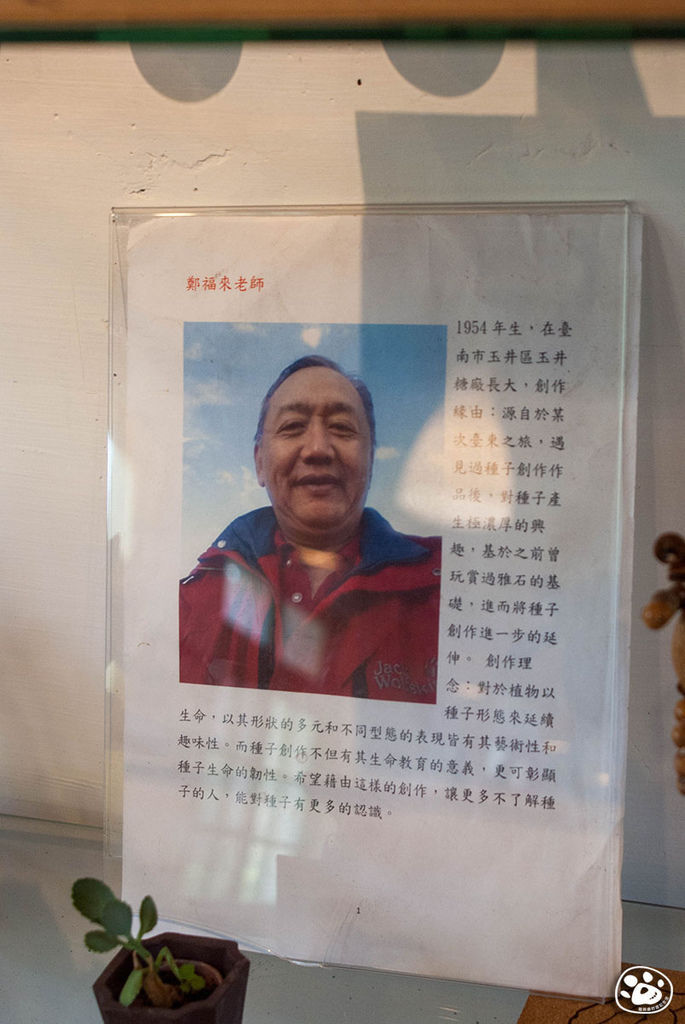 鄭福來老師
1954 年生，在臺
南市玉井區玉井
糖廠長大，創作
緣由：源自於某
次臺東之旅，遇
見過種子創作作
品後，對種子產
生極濃厚的興
趣，基於之前曾
玩賞過雅石的基
礎，進而將種子
創作進一步的延
伸。 創作理
念：對於植物以
種子形態來延續
生命，以其形狀的多元和不同型態的表現皆有其藝術性和
趣味性。而種子創作不但有其生命教育的意義，更可彰顯
種子生命的韌性。希望藉由這樣的創作，讓更多不了解種
子的人，能對種子有更多的認識。
Jack
Wolfskin
1